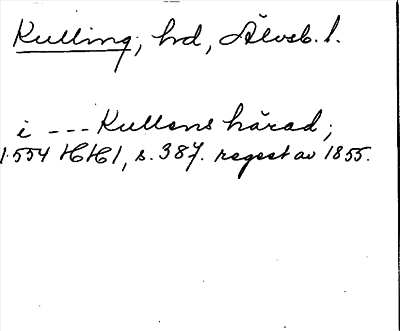 Kulling, hd, Älvsb. l.
i --- Kullens härad;
1554 HH 1, s. 387. regest av 1855.